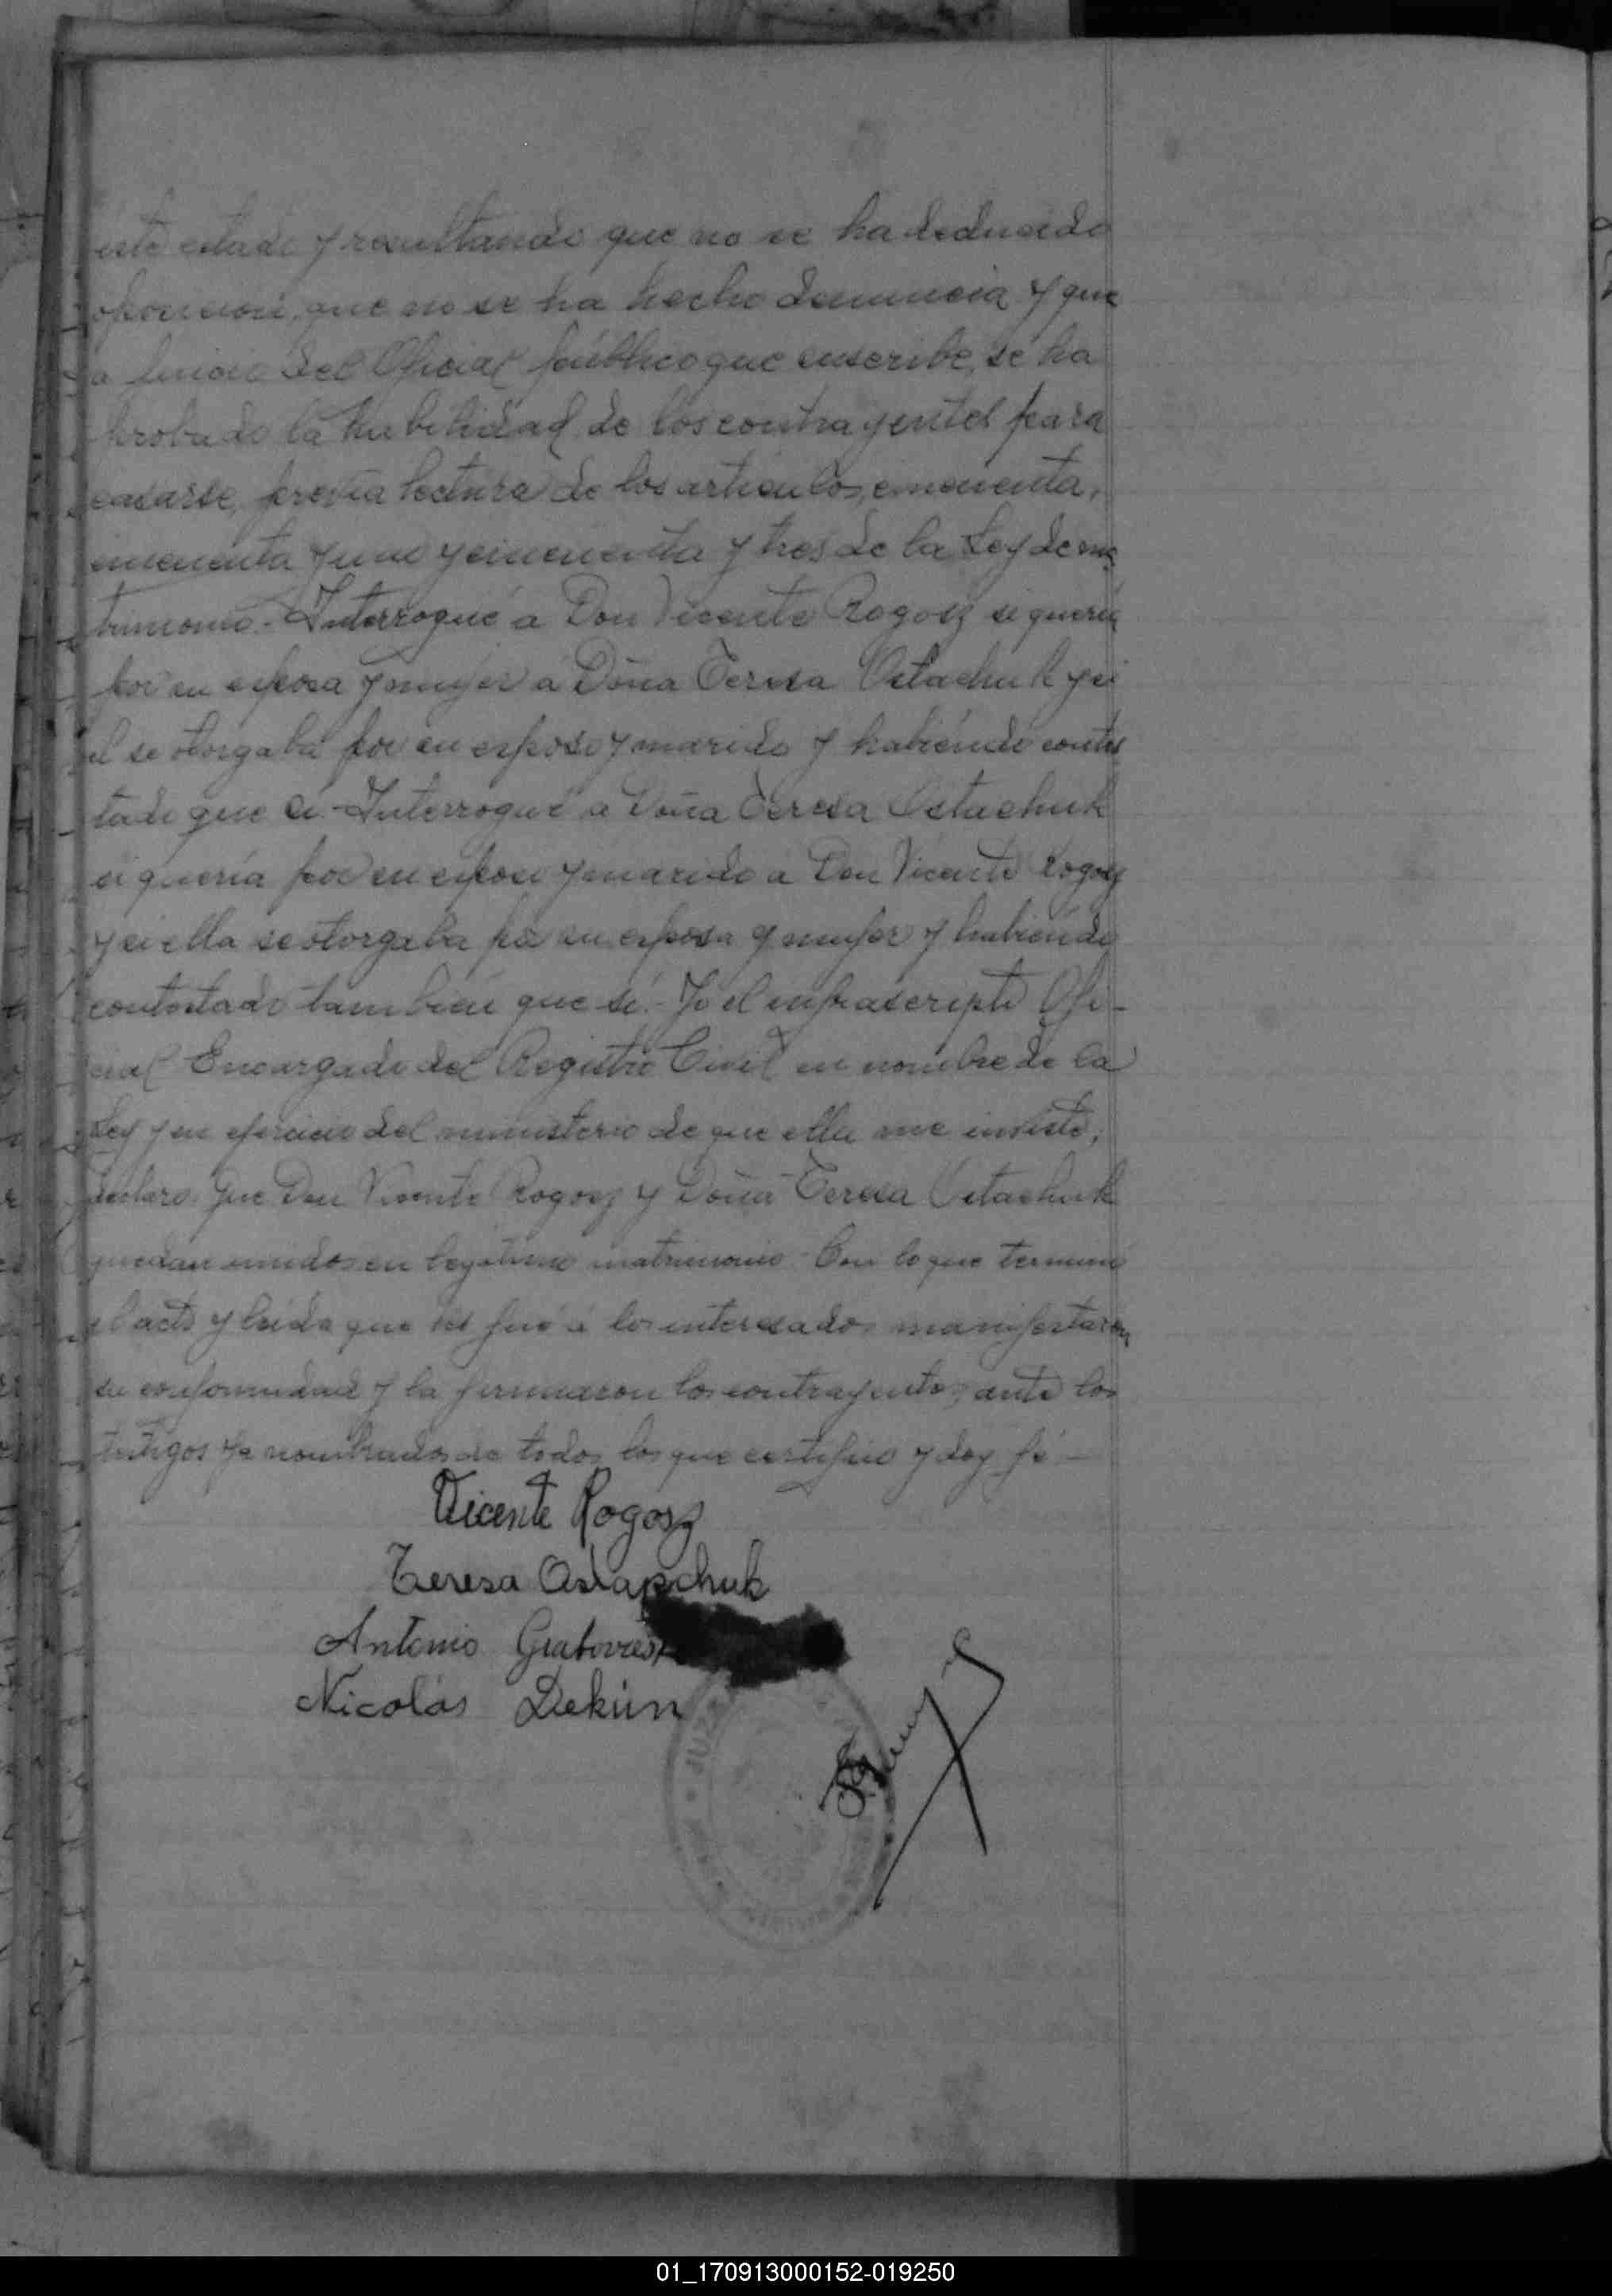 este estado y resultando que no se ha deducido
oposicion, que no se ha hecho denuncia y que
a juicio del Oficial público que suscribe, se ha
probado la habilidad de los contrayentes para
casarse, previa lectura de los articulos, cincuenta,
cincuenta y uno y cincuenta y tres de la Ley de ma
trimonio.- Interrogué a Don Vicente Rogosz si quería
por su esposa y mujer a Doña Teresa Ostachuk y si
él se otorgaba por su esposo y marido y habiendo contes
tado que si.- Interrogué a Doña Teresa Ostachuk
si quería por su esposo y marido a Don Vicente Rogosz
y si ella se otorgaba por su esposa y mujer y habiendo
contestado también que sí.- Yo el infrascripto Ofi-
cial Encargado del Registro Civil en nombre de la
Ley y en ejercicio del ministerio de que ella me inviste,
declaro que Don Vicente Rogosz y Doña Teresa Ostachuk
quedan unidos en legitimo matrimonio - Con lo que terminó
el acto y leida que les fué a los interesados manifestaron
su conformidad y la firmaron los contrayentes, ante los
testigos ya nombrados de todos los que certifico y doy fé -
Vicente Rogosz
Teresa Ostapchuk
Antonio
Nicolás Dekún
JUZ
01_170913000152-019250